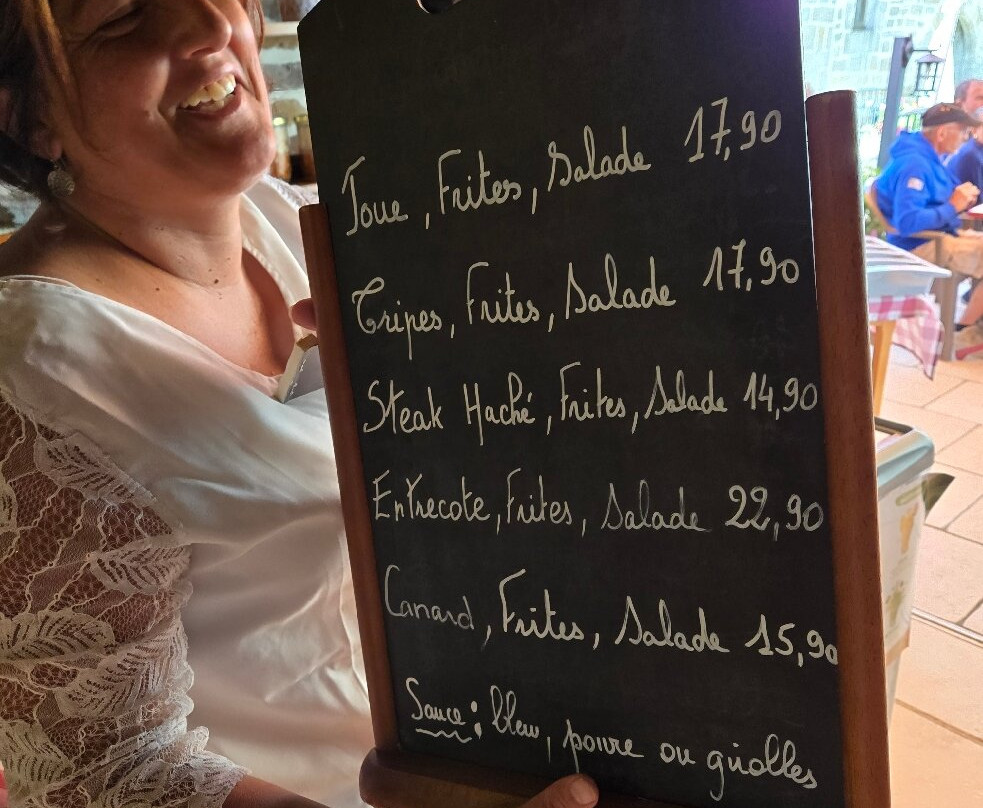 Joue, Frites, Salade 17,90
Tripes, Frites, Salade 17,90
Steak Haché, Frites, Salade 14,90
Entrecote, Frites, Salade 22,90
Canard, Frites, Salade 15,90
Sauce: bleu, poivre ou giolles